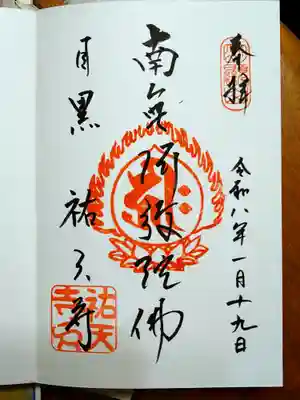 奉拝
令和八年一月十九日
南無阿弥陀佛
目黒 祐天寺
祐天寺